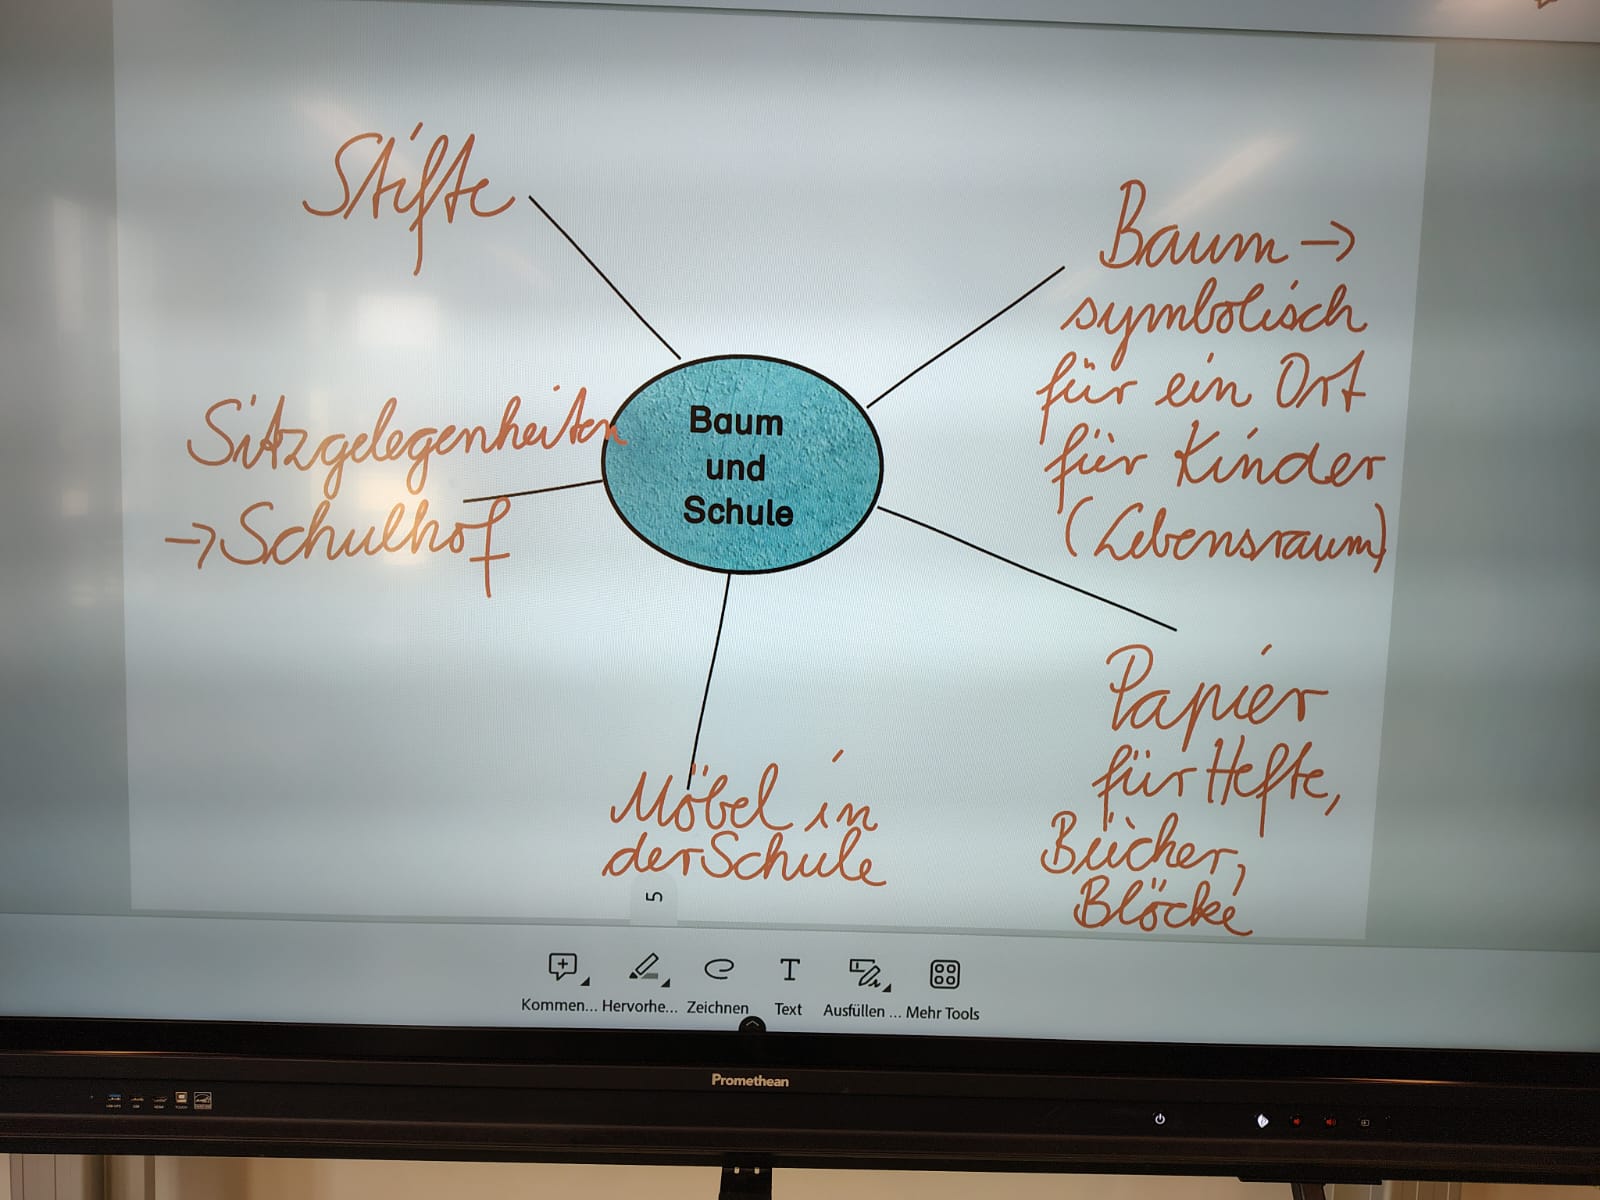 Stifte
Baum →
symbolisch
für ein Ort
für Kinder
(Lebensraum)
Sitzgelegenheiten
→ Schulhof
Baum
und
Schule
Papier
für Hefte,
Bücher,
Blöcke
Möbel in
der Schule
5
Kommen... Hervorhe... Zeichnen Text Ausfüllen ... Mehr Tools
Promethean